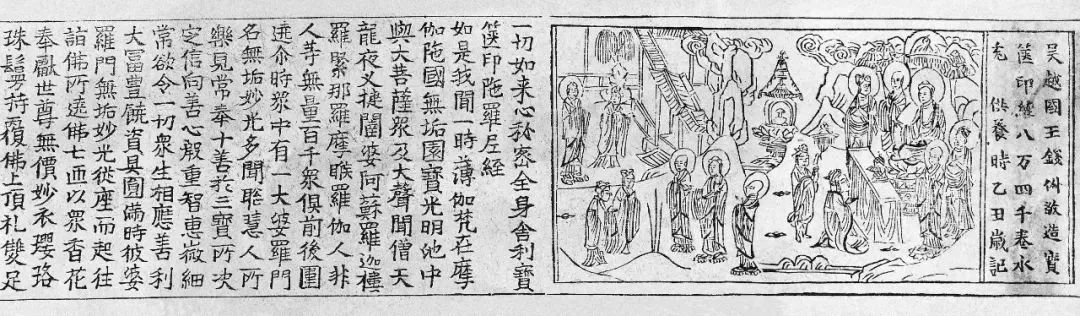 吴越國王錢俶敬造寶
篋印經八万四千卷永
充供養時乙丑歲記
一切如来心秘密全身舍利寶
篋印陁羅尼經
如是我聞一時薄伽梵在摩
伽陁國無垢園寶光明池中
與大菩薩衆及大聲聞僧天
龍夜叉揵闥婆阿蘇羅迦樓
羅緊那羅摩睺羅伽人非
人等無量百千衆俱前後圍
遶尒時衆中有一大婆羅門
名無垢妙光多聞聡慧人所
樂見常奉十善於三寶所决
定信向善心殷重智惠微細
常欲令一切衆生相應善利
大冨豊饒資具圓滿時彼婆
羅門無垢妙光從座而起往
詣佛所遶佛七匝以衆香花
奉獻世尊無價妙衣瓔珞
珠鬘持覆佛上頂礼雙足